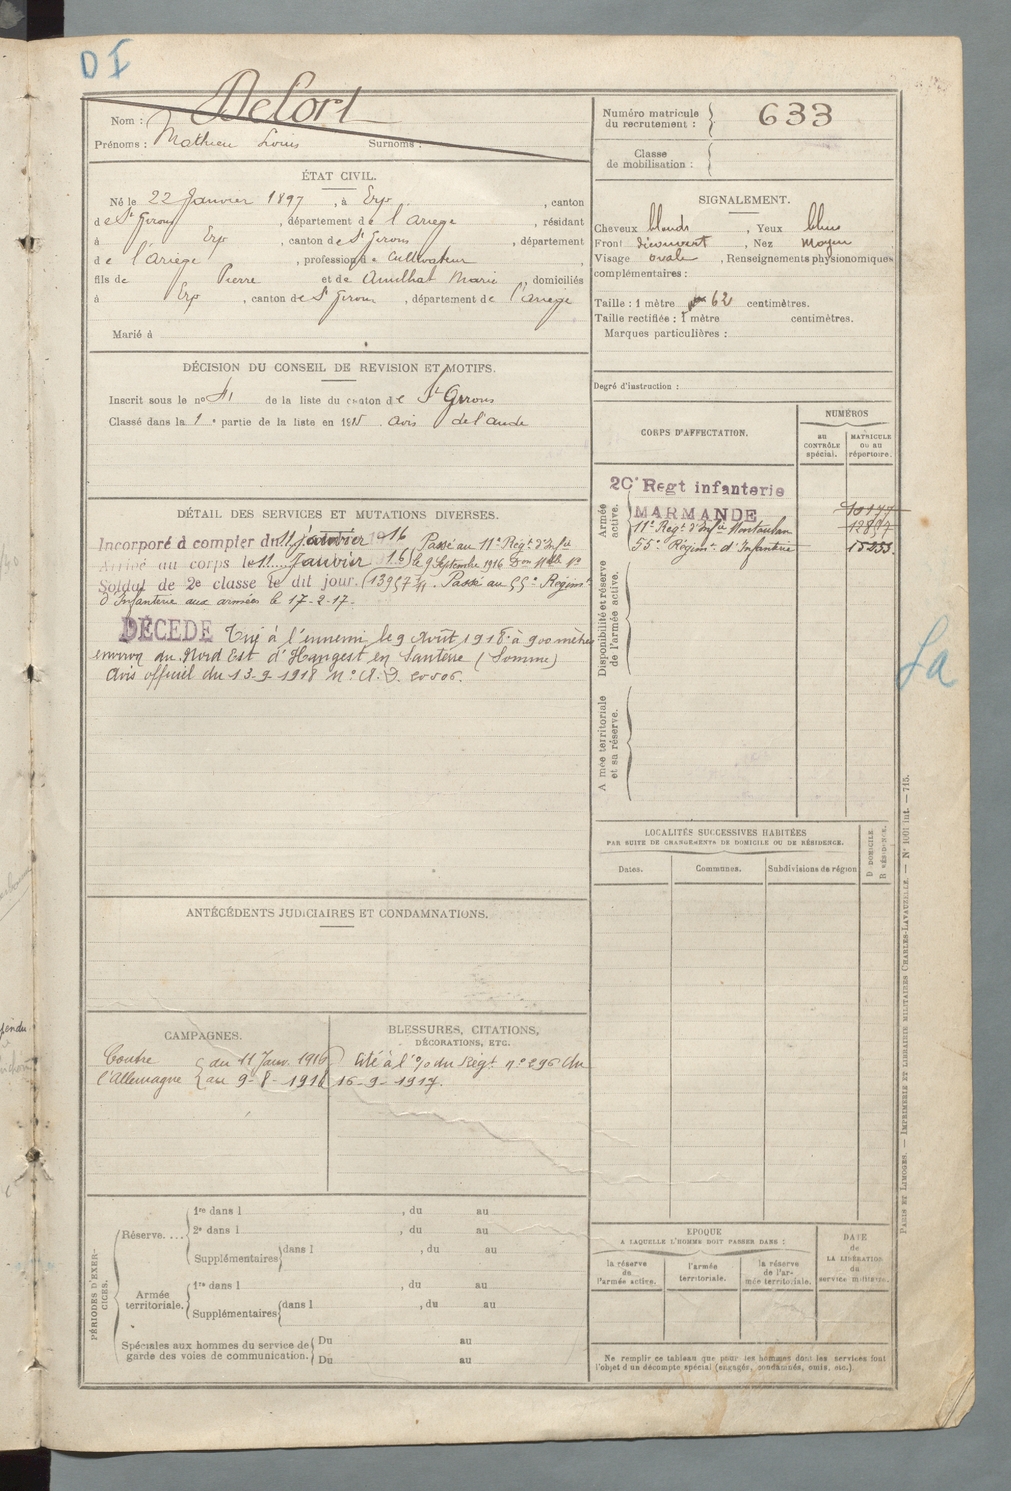 D I
Nom : Delort
Prénoms : Mathieu Louis Surnoms :
ÉTAT CIVIL.
Né le 22 Janvier 1897, à Erp, canton
de St Girons, département de l'Ariège, résidant
à Erp, canton de St Girons, département
de l'Ariège, profession de Cultivateur,
fils de Pierre et de Amilhat Marie, domiciliés
à Erp, canton de St Girons, département de l'Ariège
Marié à
DÉCISION DU CONSEIL DE REVISION ET MOTIFS.
Inscrit sous le no 41 de la liste du canton de St Girons
Classé dans la 1e partie de la liste en 1915. avis de l'aude
DÉTAIL DES SERVICES ET MUTATIONS DIVERSES.
Incorporé à compter du 11 janvier 1916 Passé au 11e Régt d'Infie
Arrivé au corps le 11 Janvier 16 le 9 Septembre 1916 Don Mlle No
Soldat de 2e classe le dit jour. Passé au 55e Régimt
d'Infanterie aux armées le 17-2-17.
DÉCÉDÉ Tué à l'ennemi le 9 Août 1918 à 900 mètres
environ du Nord Est d'Hangest en Santerre (Somme)
Avis officiel du 13-9-1918 No A.D. 20506.
ANTÉCÉDENTS JUDICIAIRES ET CONDAMNATIONS.
CAMPAGNES.
Contre l'Allemagne { du 11 Janv. 1916
au 9-8-1918
BLESSURES, CITATIONS,
DÉCORATIONS, ETC.
Cité à l'% du Régt no 296 du
16-9-1917.
PÉRIODES D'EXERCICES.
Réserve....
1re dans l , du au
2e dans l , du au
Supplémentaires dans l , du au
Armée territoriale.
1re dans l , du au
Supplémentaires dans l , du au
Spéciales aux hommes du service de garde des voies de communication.
Du au
Du au
Numéro matricule
du recrutement : 633
Classe
de mobilisation :
SIGNALEMENT.
Cheveux blonds, Yeux bleus
Front découvert, Nez Moyen
Visage ovale, Renseignements physionomiques
complémentaires :
Taille : 1 mètre 62 centimètres.
Taille rectifiée : 1 mètre centimètres.
Marques particulières :
Degré d'instruction :
CORPS D'AFFECTATION.
NUMÉROS
au CONTRÔLE spécial.
MATRICULE ou au répertoire.
Armée active.
20e Regt infanterie
MARMANDE
11e Regt d'Infie Montauban
55e Régimt d'Infanterie
Disponibilité et réserve de l'armée active.
Armée territoriale et sa réserve.
LOCALITÉS SUCCESSIVES HABITÉES
PAR SUITE DE CHANGEMENTS DE DOMICILE OU DE RÉSIDENCE.
Dates.
Communes.
Subdivisions de région
D DOMICILE.
R RÉSIDENCE.
ÉPOQUE
A LAQUELLE L'HOMME DOIT PASSER DANS :
la réserve de l'armée active.
l'armée territoriale.
la réserve de l'armée territoriale.
DATE
de
LA LIBÉRATION
du
service militaire.
Ne remplir ce tableau que pour les hommes dont les services font
l'objet d'un décompte spécial (engagés, condamnés, omis, etc.).
PARIS ET LIMOGES. — IMPRIMERIE ET LIBRAIRIE MILITAIRES CHARLES-LAVAUZELLE. — No 1001 int. — 715.